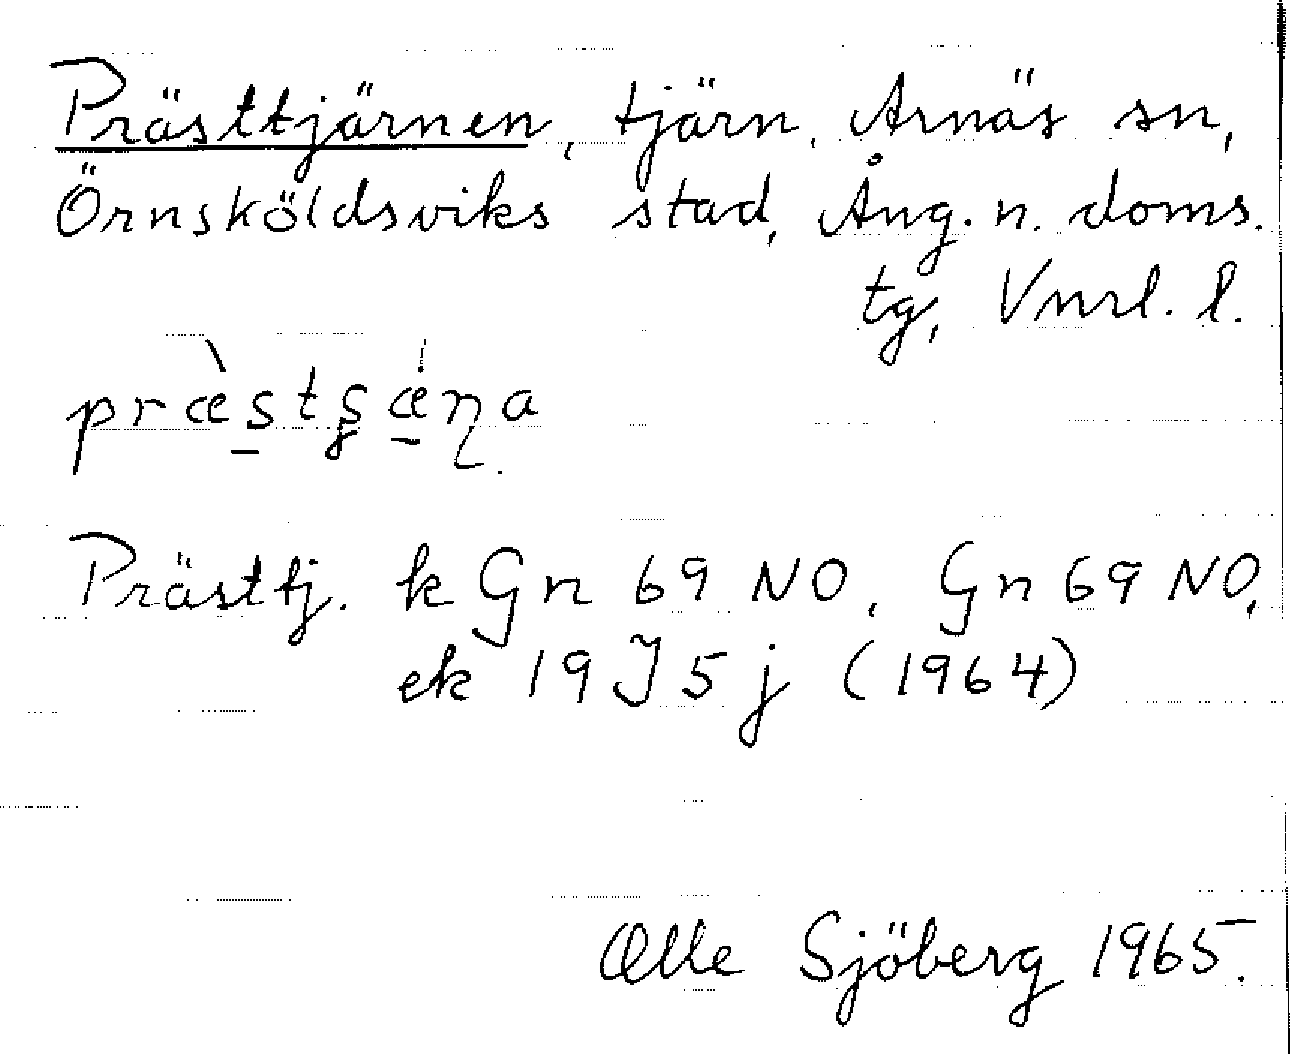 Prästtjärnen, tjärn, Arnäs sn,
Örnsköldsviks stad, Ång. n. doms.
tg, Vnrl. l.
præ̀stʂǽɳa.
Prästtj. k Gn 69 NO, Gn 69 NO,
ek 19 J 5 j (1964)
Olle Sjöberg 1965.